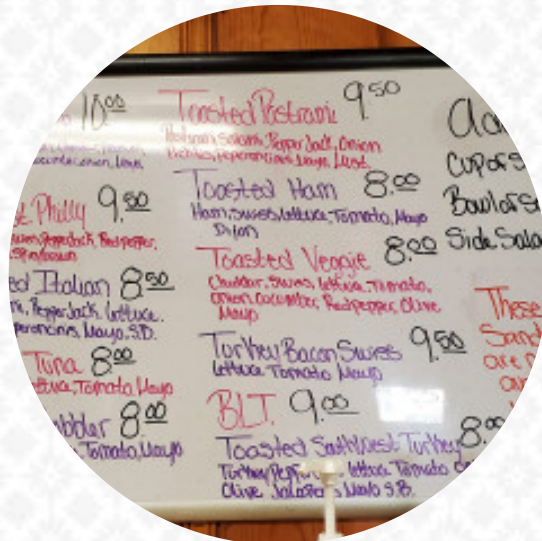 10.00
onion, Mayo
Philly 9.50
Pepper Jack, Red pepper,
Italian 8.50
Pepper Jack, lettuce,
Mayo, S.D.
Tuna 8.00
Tomato Mayo
8.00
Tomato, Mayo
Toasted Pastrami 9.50
Pastrami, Salami, Pepper Jack, Onion
Pickles, Peperoncinis, Mayo, Must.
Toasted Ham 8.00
Ham, Swiss, lettuce, Tomato, Mayo
Dijon
Toasted Veggie 8.00
Cheddar, Swiss, lettuce, Tomato,
Onion, Cucumber, Red pepper, Olive
Mayo
Turkey Bacon Swiss 9.50
lettuce Tomato Mayo
BLT. 9.00
Toasted SouthWest Turkey 8.00
Turkey lettuce Tomato
Olive Jalapenos Mayo S.B.
Cup of S
Bowl of S
Side Sala
These
Sand
are